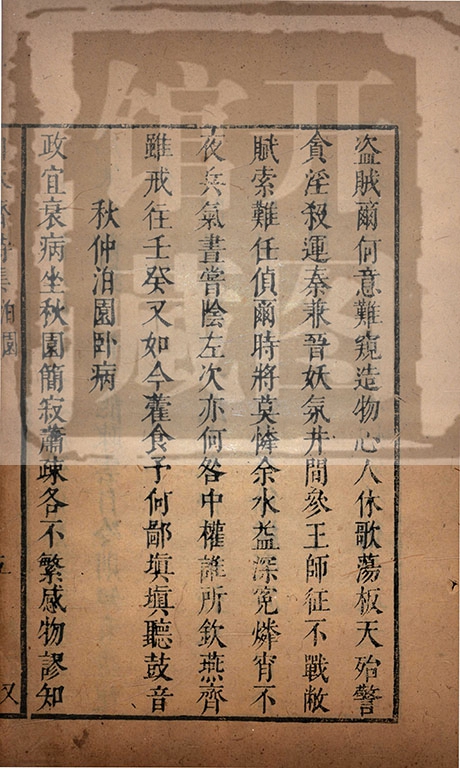 盜賊爾何意難窺造物心人休歌蕩板天殆警
貪淫殺運秦兼晉妖氛井間參王師征不戰敝
賦索難任偵爾時將莫憐余水益深冤燐宵不
夜兵氣晝嘗陰左次亦何咎中權誰所欽燕齊
雖戒往壬癸又如今藿食予何鄙塡塡聽鼓音
秋仲泊園卧病
政宜衰病坐秋園簡寂蕭疎各不繁感物謬知
集泊園
五
又
开图
馆藏